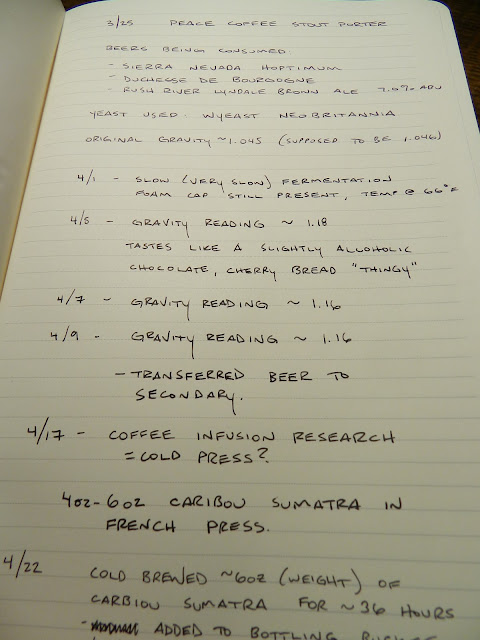 3/25 PEACE COFFEE STOUT PORTER
BEERS BEING CONSUMED:
- SIERRA NEVADA HOPTIMUM
- DUCHESSE DE BOURGOGNE
- RUSH RIVER LYNDALE BROWN ALE 7.0% ABV
YEAST USED: WYEAST NEOBRITANNIA
ORIGINAL GRAVITY ~1.045 (SUPPOSED TO BE 1.046)
4/1 - SLOW (VERY SLOW) FERMENTATION
FOAM CAP STILL PRESENT, TEMP @ 66°F
4/5 - GRAVITY READING ~ 1.18
TASTES LIKE A SLIGHTLY ALCOHOLIC
CHOCOLATE, CHERRY BREAD "THINGY"
4/7 - GRAVITY READING ~ 1.16
4/9 - GRAVITY READING ~ 1.16
- TRANSFERRED BEER TO
SECONDARY.
4/17 - COFFEE INFUSION RESEARCH
= COLD PRESS?
4oz-6oz CARIBOU SUMATRA IN
FRENCH PRESS.
4/22 COLD BREWED ~6oz (WEIGHT) OF
CARBIOU SUMATRA FOR ~36 HOURS
- ADDED TO BOTTLING